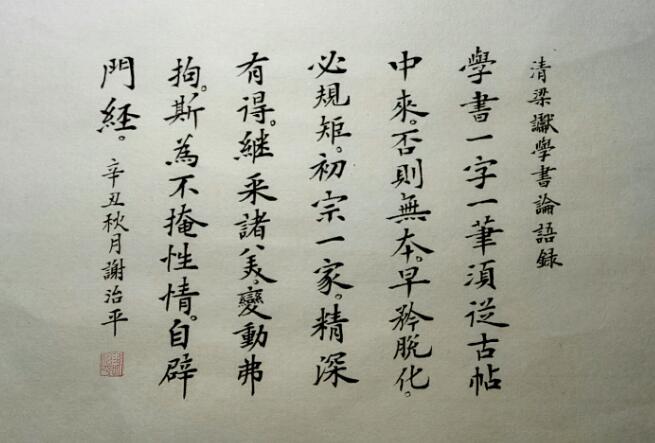 清梁巘學書論語録
學書一字一筆須從古帖
中來。否則無本。早矜脫化。
必規矩。初宗一家。精深
有得。継采諸美。變動弗
拘。斯為不掩性情。自辟
門経。
辛丑秋月謝治平